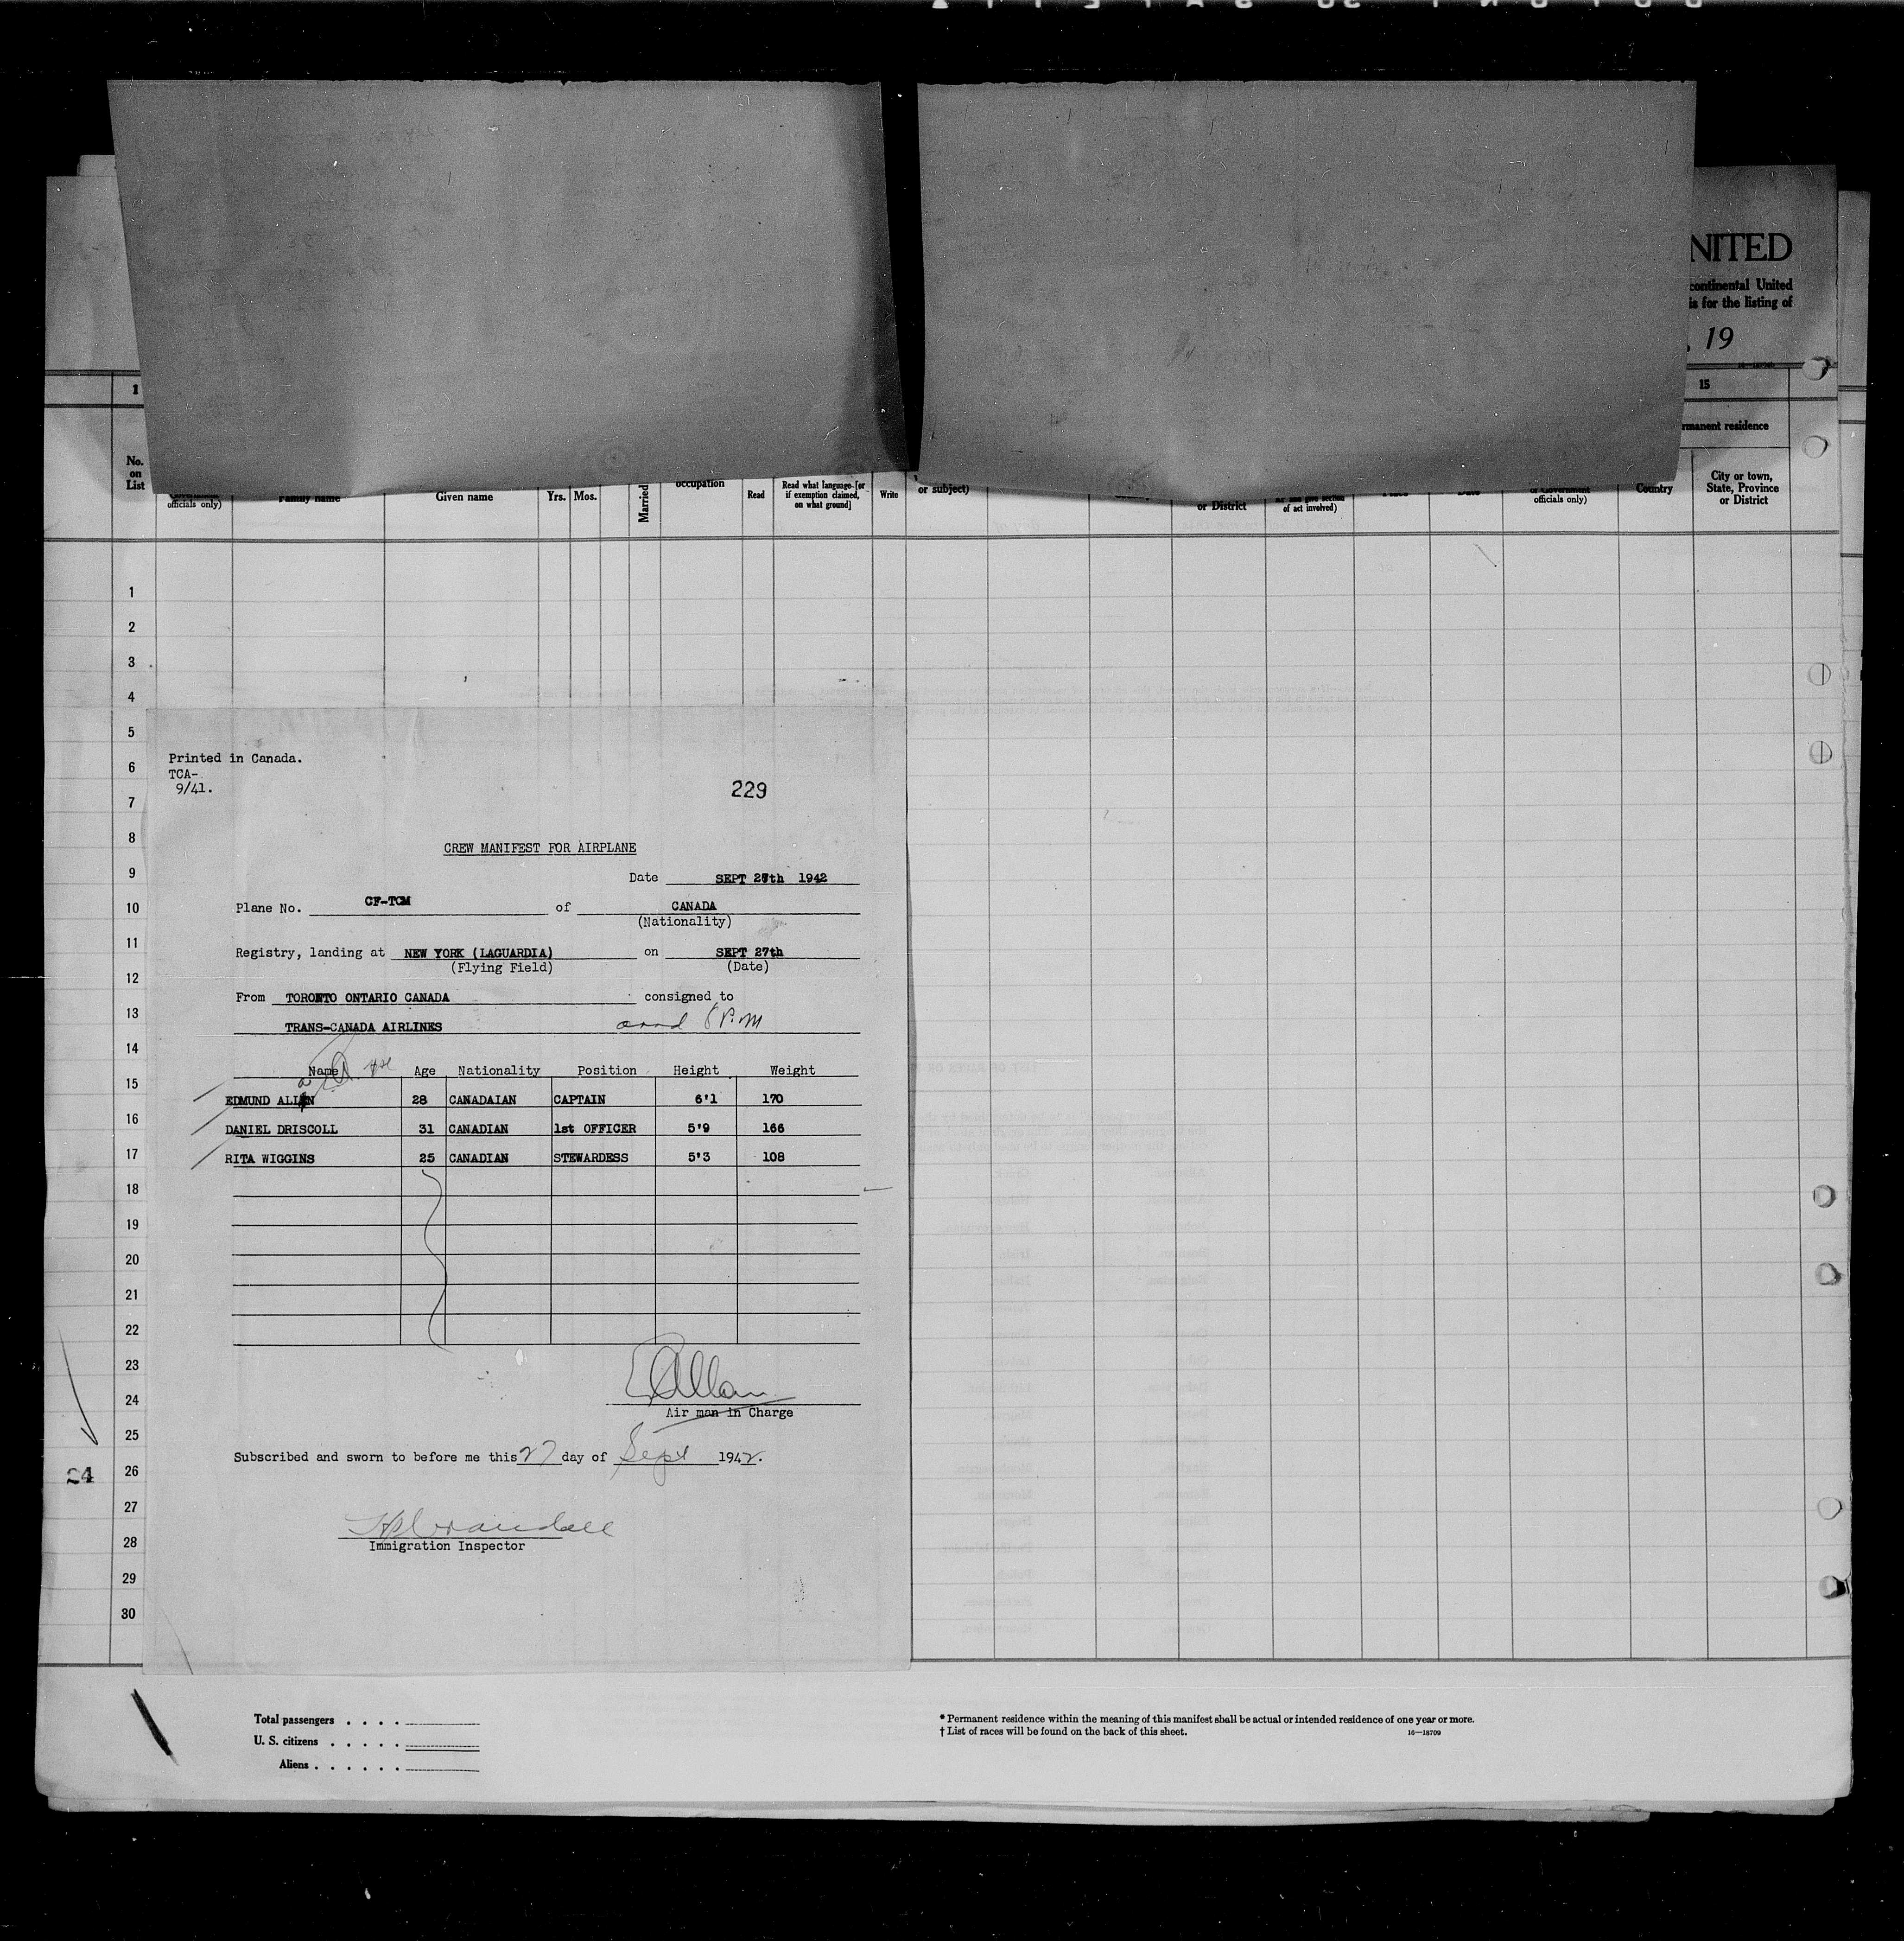 NITED
continental United
is for the listing of
, 19
1
15
rmanent residence
No. on List
officials only)
Family name
Given name
Yrs.
Mos.
Married
occupation
Read
Read what language [or if exemption claimed, on what ground]
Write
or subject)
or District
of act involved)
Date
or Government officials only)
Country
City or town, State, Province or District
1
2
3
4
5
6
7
8
9
10
11
12
13
14
15
16
17
18
19
20
21
22
23
24
25
26
27
28
29
30
24
Printed in Canada.
TCA-
9/41.
229
CREW MANIFEST FOR AIRPLANE
Date SEPT 27th 1942
Plane No. CF-TCM of CANADA
(Nationality)
Registry, landing at NEW YORK (LAGUARDIA) on SEPT 27th
(Flying Field) (Date)
From TORONTO ONTARIO CANADA consigned to
TRANS-CANADA AIRLINES
Name Age Nationality Position Height Weight
EDMUND ALLAN 28 CANADAIAN CAPTAIN 6'1 170
DANIEL DRISCOLL 31 CANADIAN 1st OFFICER 5'9 166
RITA WIGGINS 25 CANADIAN STEWARDESS 5'3 108
E Allan
Air man in Charge
Subscribed and sworn to before me this 27 day of Sept 1942.
Immigration Inspector
Total passengers . . . .
U. S. citizens . . . . .
Aliens . . . . . .
* Permanent residence within the meaning of this manifest shall be actual or intended residence of one year or more.
† List of races will be found on the back of this sheet.
16—18709